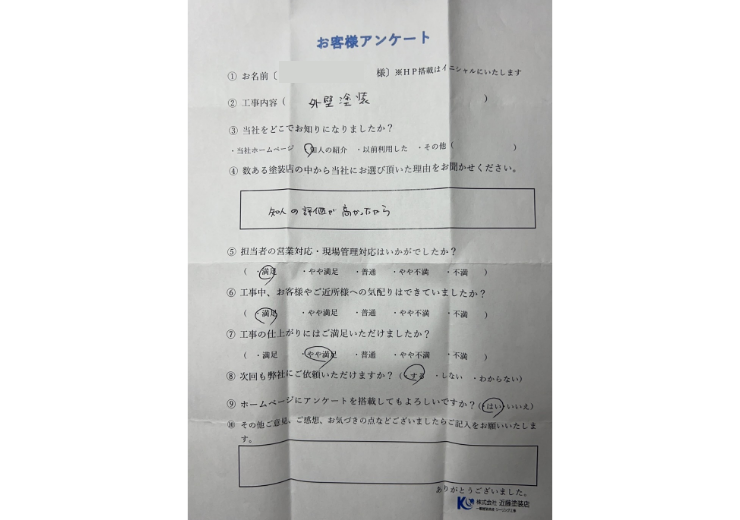 お客様アンケート
① お名前〔 様〕※ＨＰ搭載はイニシャルにいたします
② 工事内容（ 外壁塗装 ）
③ 当社をどこでお知りになりましたか？
・当社ホームページ ・知人の紹介 ・以前利用した ・その他（ ）
④ 数ある塗装店の中から当社にお選び頂いた理由をお聞かせください。
知人の評価が高かったから
⑤ 担当者の営業対応・現場管理対応はいかがでしたか？
（ ・満足 ・やや満足 ・普通 ・やや不満 ・不満 ）
⑥ 工事中、お客様やご近所様への気配りはできていましたか？
（ ・満足 ・やや満足 ・普通 ・やや不満 ・不満 ）
⑦ 工事の仕上がりにはご満足いただけましたか？
（ ・満足 ・やや満足 ・普通 ・やや不満 ・不満 ）
⑧ 次回も弊社にご依頼いただけますか？（・する ・しない ・わからない）
⑨ ホームページにアンケートを搭載してもよろしいですか？（・はい・いいえ）
⑩ その他ご意見、ご感想、お気づきの点などございましたらご記入をお願いいたしま
す。
ありがとうございました。
株式会社 近藤塗装店